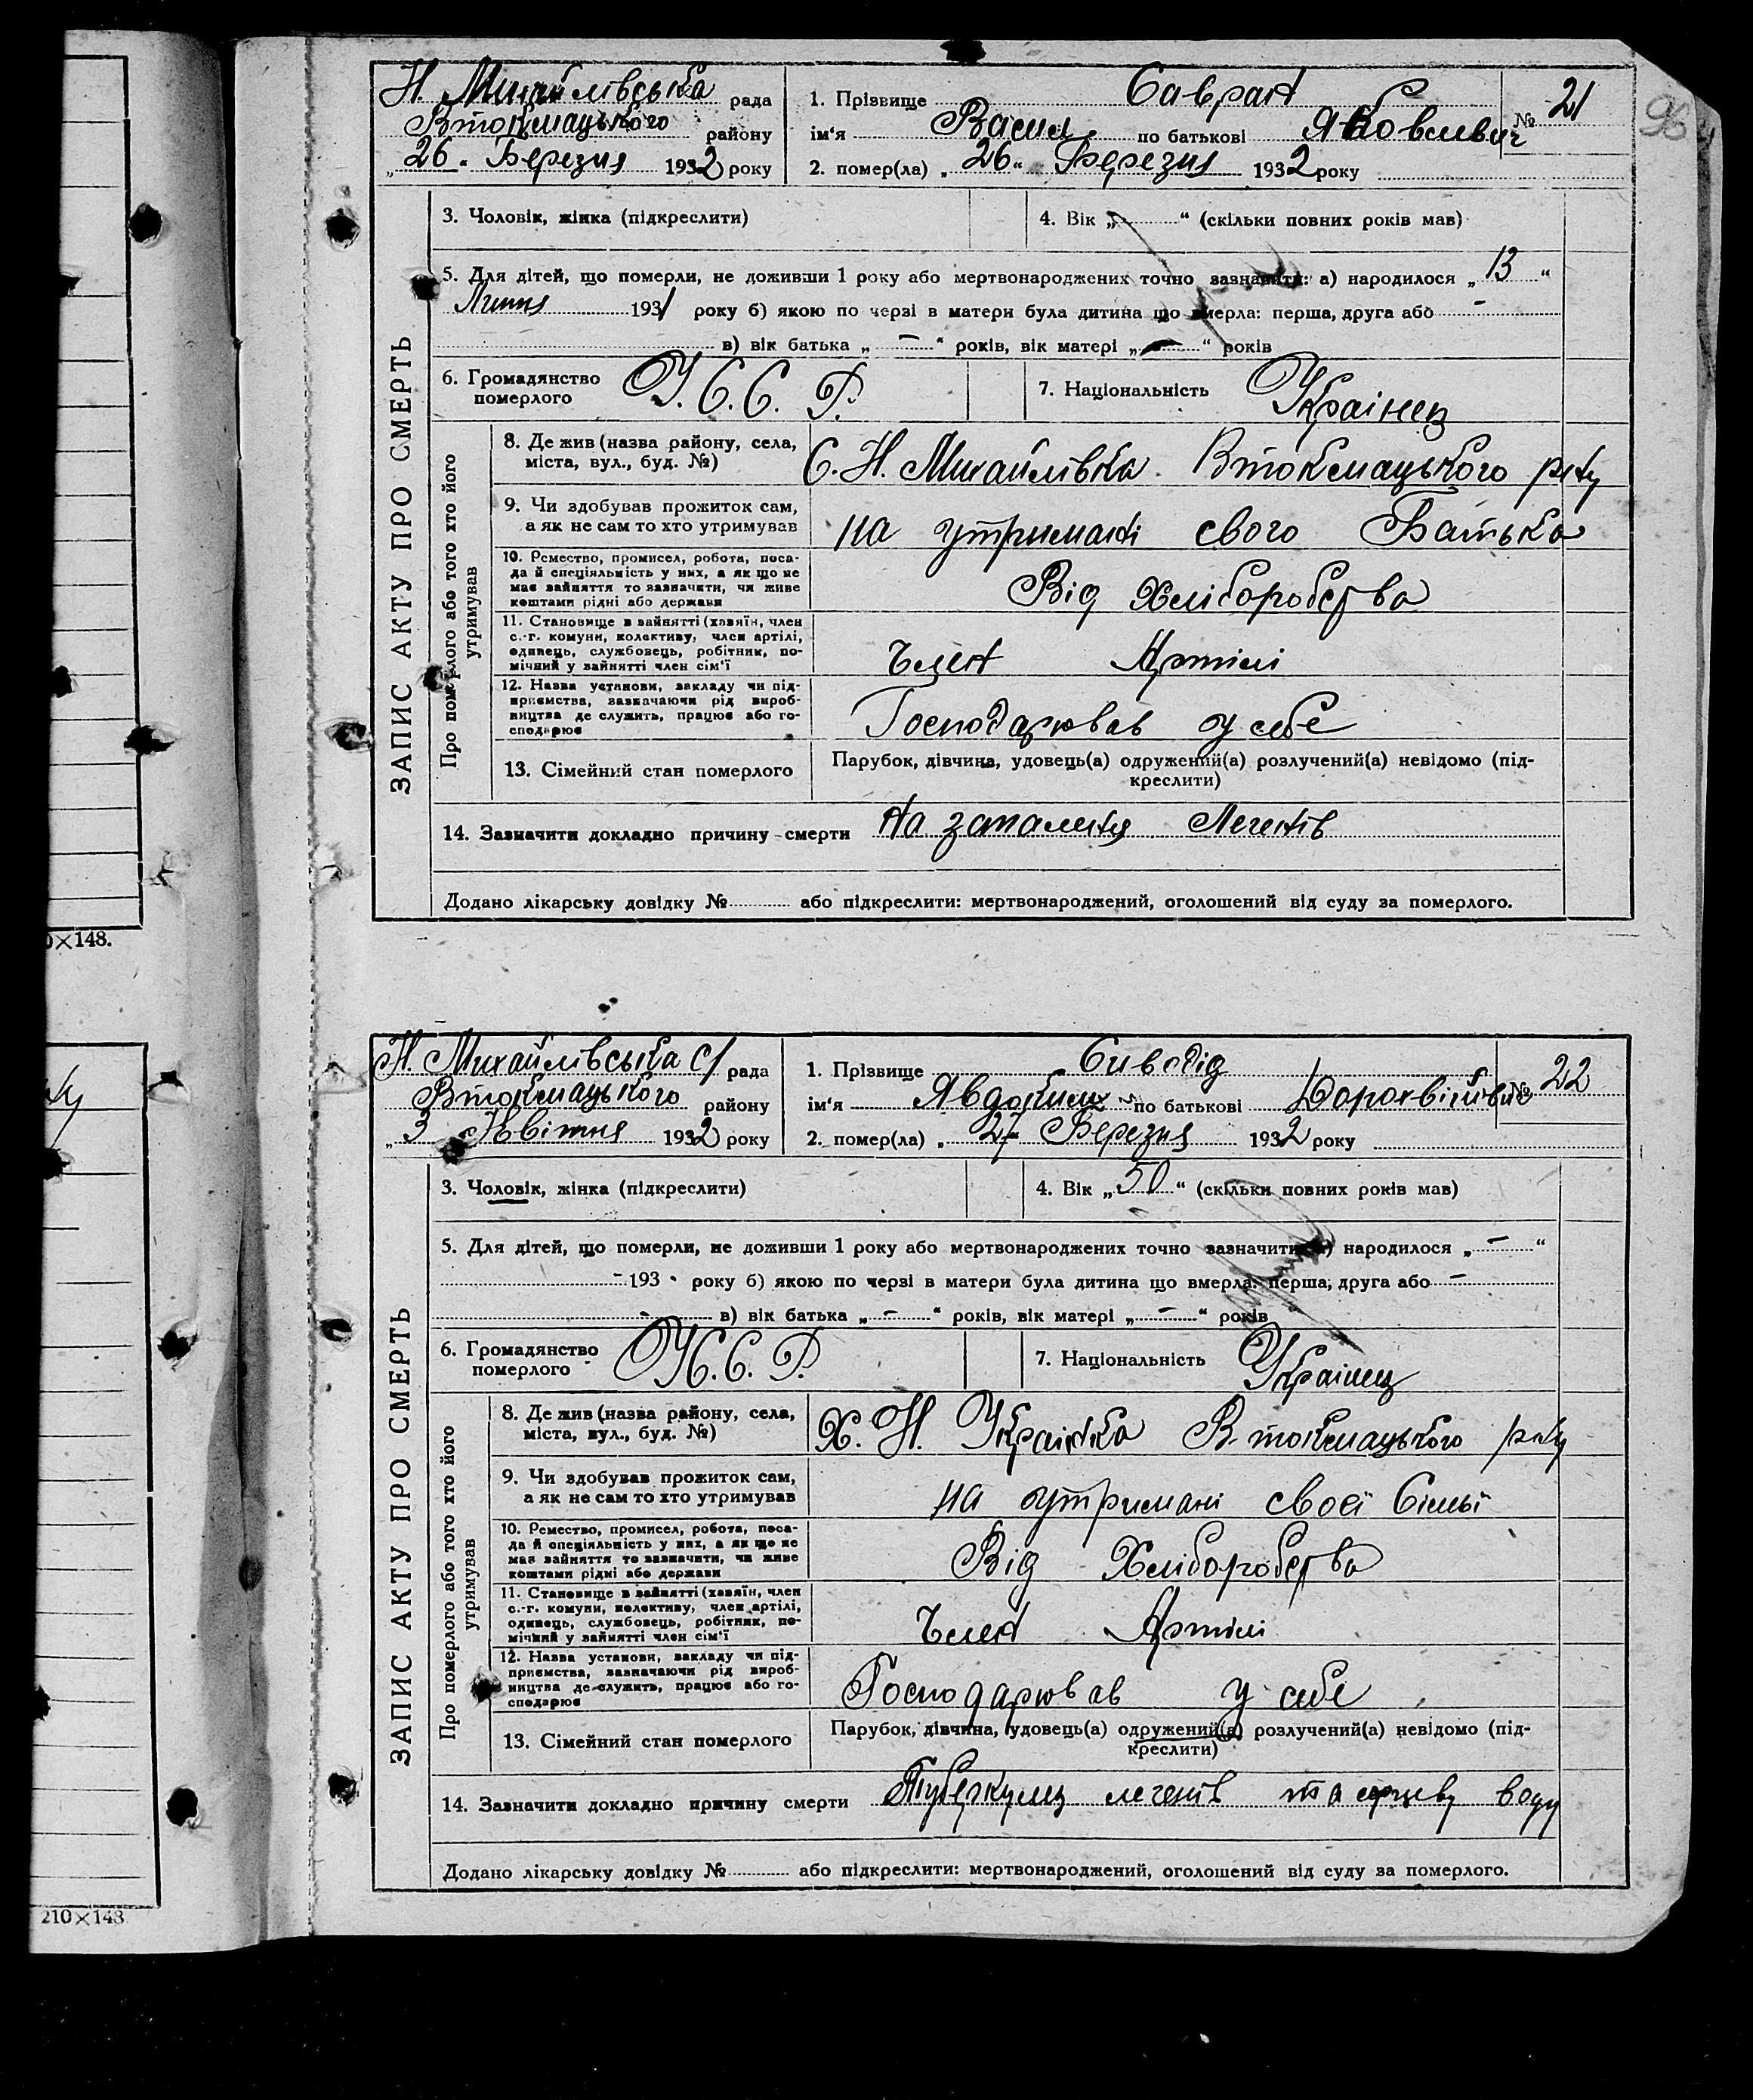 96
Н. Михайлівська рада
Втокмацького району
„26" Березня 1932 року
1. Прізвище Савран № 21
ім'я Васил по батькові Яковлевич
2. помер(ла) „26" Березня 1932 року
ЗАПИС АКТУ ПРО СМЕРТЬ
3. Чоловік, жінка (підкреслити)
4. Вік „ " (скільки повних років мав)
5. Для дітей, що померли, не доживши 1 року або мертвонароджених точно зазначити: а) народилося „13"
Липня 1931 року б) якою по черзі в матери була дитина що вмерла: перша, друга або -
в) вік батька „-" років, вік матері „-" років
6. Громадянство
померлого У.С.С.Р.
7. Національність Українец
Про померлого або того хто його
утримував
8. Де жив (назва району, села,
міста, вул., буд. №)
С. Н. Михайлівка Втокмацького р-ну
9. Чи здобував прожиток сам,
а як не сам то хто утримував
на утримані свого Батька
10. Ремество, промисел, робота, поса-
да й спеціяльність у них, а як що не
має зайняття то зазначити, чи живе
коштами рідні або держави
Від Хліборобства
11. Становище в зайнятті (хазяїн, член
с.-г. комуни, колективу, член артілі,
одинець, службовець, робітник, по-
мічний у зайнятті член сім'ї
Член Артілі
12. Назва установи, закладу чи під-
приємства, зазначаючи рід вироб-
ництва де служить, працює або го-
сподарює
Господарював у себе
13. Сімейний стан померлого
Парубок, дівчина, удовець(а) одружений(а) розлучений(а) невідомо (під-
креслити)
14. Зазначити докладно причину смерти На запаленя Легенів
Додано лікарську довідку № або підкреслити: мертвонароджений, оголошений від суду за померлого.
0×148.
Н. Михайлівська с/рада
Втокмацького району
„3 Квітня 1932 року
1. Прізвище Сиводід № 22
ім'я по батькові
2. помер(ла) „27 Березня 1932 року
ЗАПИС АКТУ ПРО СМЕРТЬ
3. Чоловік, жінка (підкреслити)
4. Вік „50" (скільки повних років мав)
5. Для дітей, що померли, не доживши 1 року або мертвонароджених точно зазначити: а) народилося „-"
- 193 - року б) якою по черзі в матери була дитина що вмерла: перша, друга або -
- в) вік батька „-" років, вік матері „-" років
6. Громадянство
померлого
7. Національність Українец
Про померлого або того хто його
утримував
8. Де жив (назва району, села,
міста, вул., буд. №)
Х. Н. Українка Втокмацького р-ну
9. Чи здобував прожиток сам,
а як не сам то хто утримував
на утримані своєї Сімьї
10. Ремество, промисел, робота, поса-
да й спеціяльність у них, а як що не
має зайняття то зазначити, чи живе
коштами рідні або держави
Від Хліборобства
11. Становище в зайнятті (хазяїн, член
с.-г. комуни, колективу, член артілі,
одинець, службовець, робітник, по-
мічний у зайнятті член сім'ї
Член Артілі
12. Назва установи, закладу чи під-
приємства, зазначаючи рід вироб-
ництва де служить, працює або го-
сподарює
Господарював у себе
13. Сімейний стан померлого
Парубок, дівчина, удовець(а) одружений(а) розлучений(а) невідомо (під-
креслити)
14. Зазначити докладно причину смерти Туберкулц легенів та серцеву ваду
Додано лікарську довідку № або підкреслити: мертвонароджений, оголошений від суду за померлого.
210×148